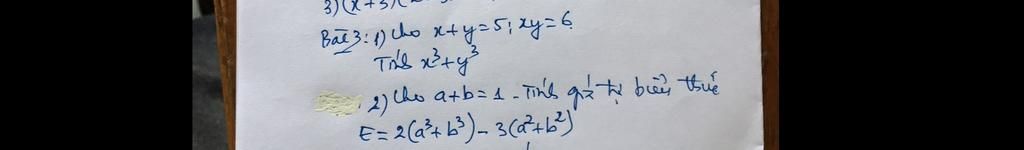 3)(x+3)(
Bài 3: 1) Cho x+y=5; xy=6
Tính x³+y³
2) Cho a+b=1. Tính giá trị biểu thức
E=2(a³+b³)-3(a²+b²)